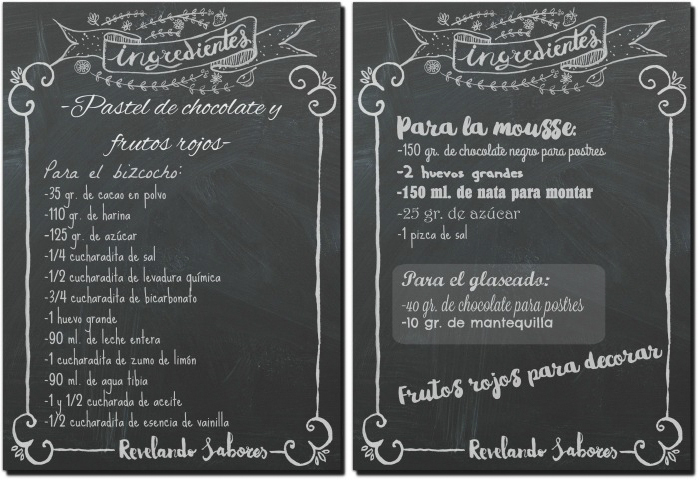 ingredientes
-Pastel de chocolate y
frutos rojos-
Para el bizcocho:
-35 gr. de cacao en polvo
-110 gr. de harina
-125 gr. de azúcar
-1/4 cucharadita de sal
-1/2 cucharadita de levadura química
-3/4 cucharadita de bicarbonato
-1 huevo grande
-90 ml. de leche entera
-1 cucharadita de zumo de limón
-90 ml. de agua tibia
-1 y 1/2 cucharada de aceite
-1/2 cucharadita de esencia de vainilla
Revelando Sabores
ingredientes
Para la mousse:
-150 gr. de chocolate negro para postres
-2 huevos grandes
-150 ml. de nata para montar
-25 gr. de azúcar
-1 pizca de sal
Para el glaseado:
-40 gr. de chocolate para postres
-10 gr. de mantequilla
Frutos rojos para decorar
Revelando Sabores